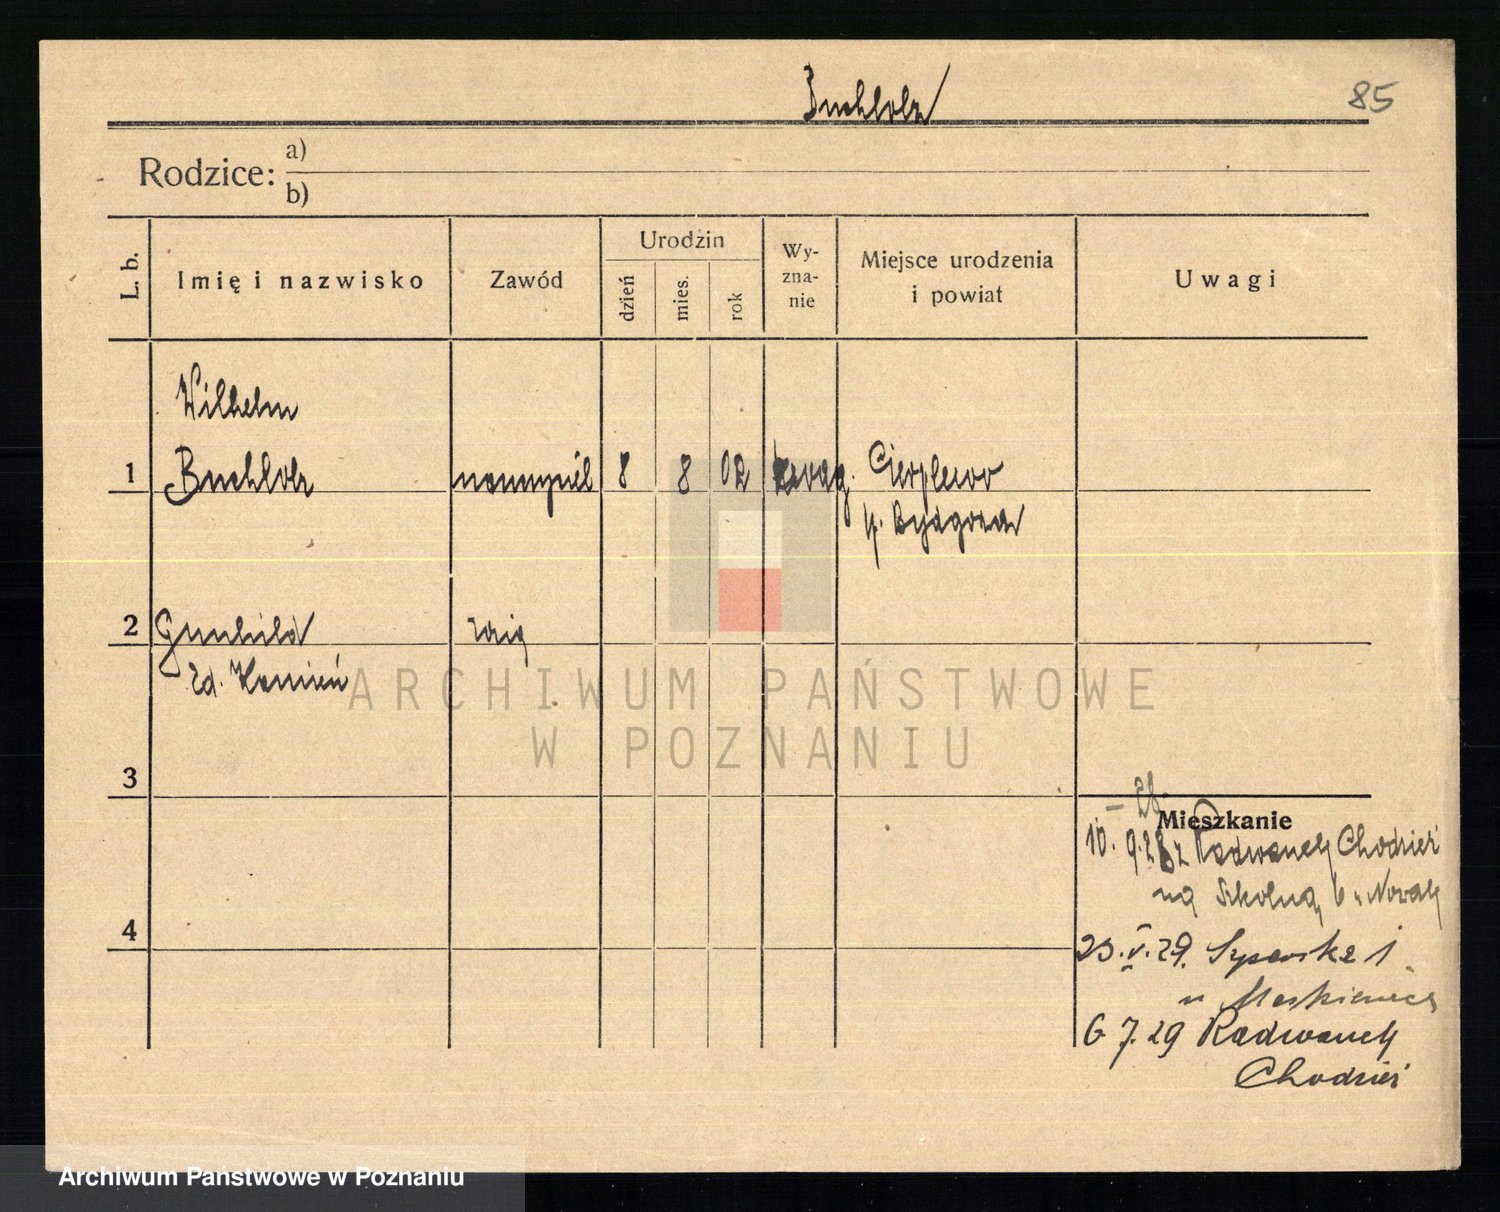 Buchholz
85
Rodzice:
a)
b)
L. b.
Imię i nazwisko
Zawód
Urodzin
dzień
mies.
rok
Wy-
zna-
nie
Miejsce urodzenia
i powiat
Uwagi
Wilhelm
1 Buchholz 8 8 02 ewag. Cierplewo
p. Bydgoszcz
2 Gunhild
zd. Kamień
ARCHIWUM PAŃSTWOWE
W POZNANIU
3
28
Mieszkanie
10. 9.28 z Radwanek Chodzież
na Szkolną 6 u Nowak
4
23.V.29.
u
6 7.29 Radwanek
Chodzież
Archiwum Państwowe w Poznaniu